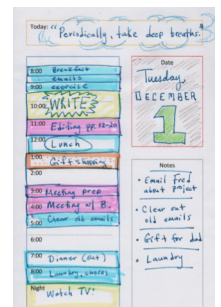 Today:
Periodically, take deep breaths.
8:00 Breakfast
emails
9:00 exercise
10:00 WRITE
11:00 Editing pp. 12-20
12:00 Lunch
1:00 Gift shopping
2:00
3:00 Meeting prep
4:00 Meeting w/ B.
5:00 Clear old emails
6:00
7:00 Dinner (out)
8:00 Laundry, chores
Night
Watch TV!
Date
Tuesday,
DECEMBER
1
Notes
• Email Fred
about project
• Clear out
old emails
• Gift for dad
• Laundry